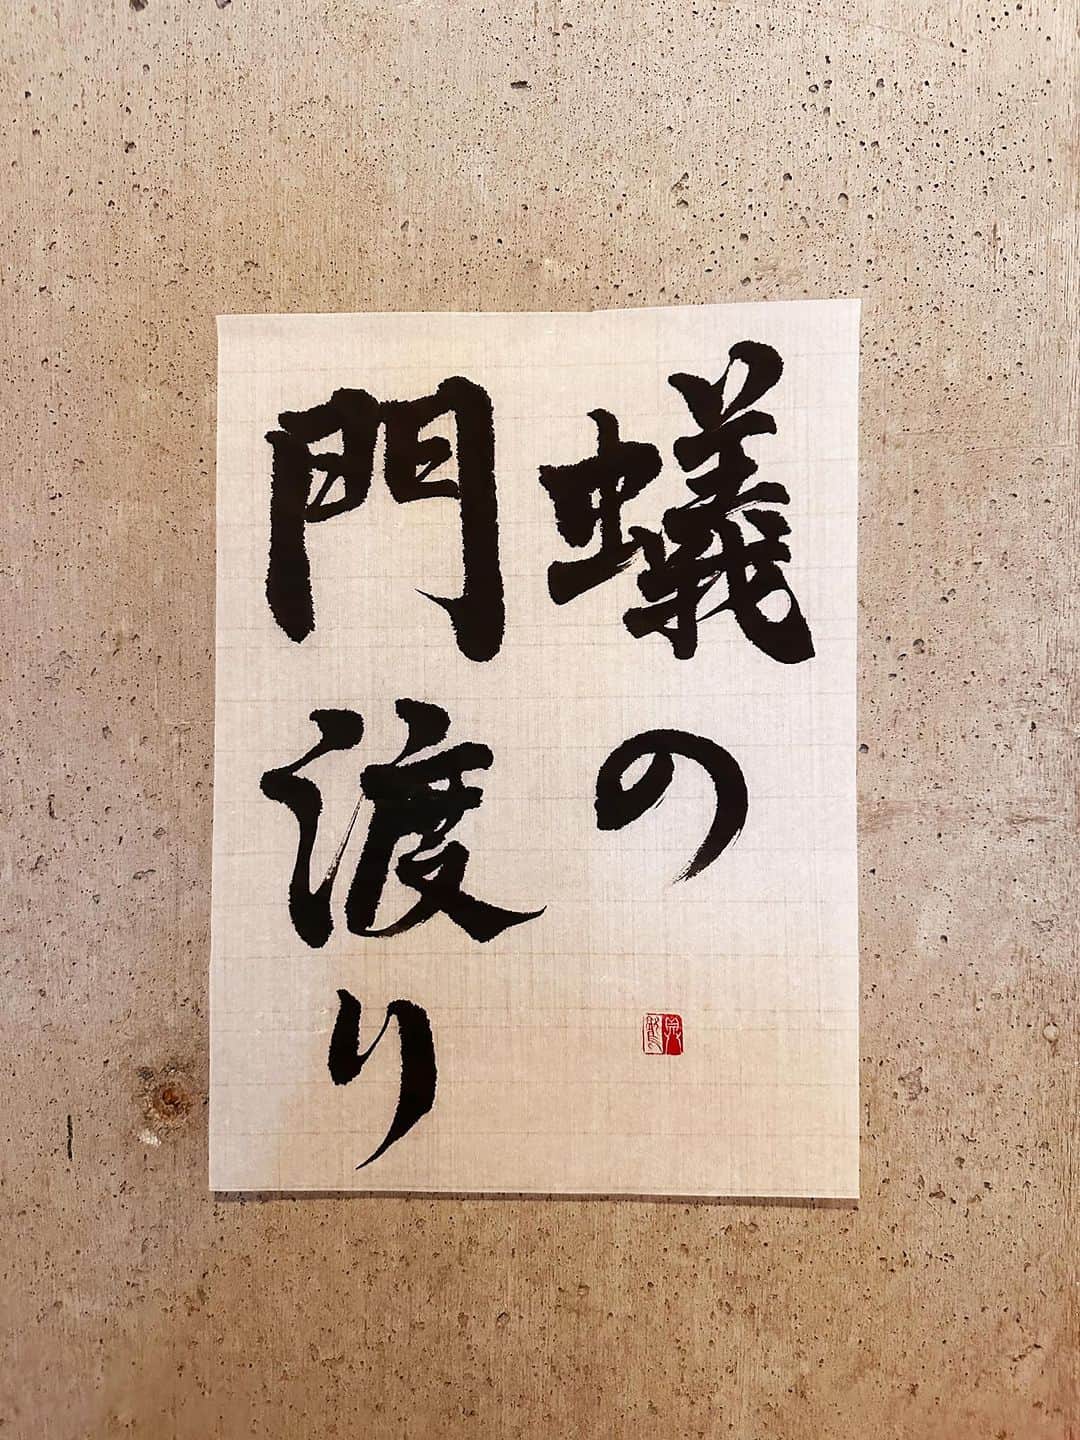 蟻の
門渡り